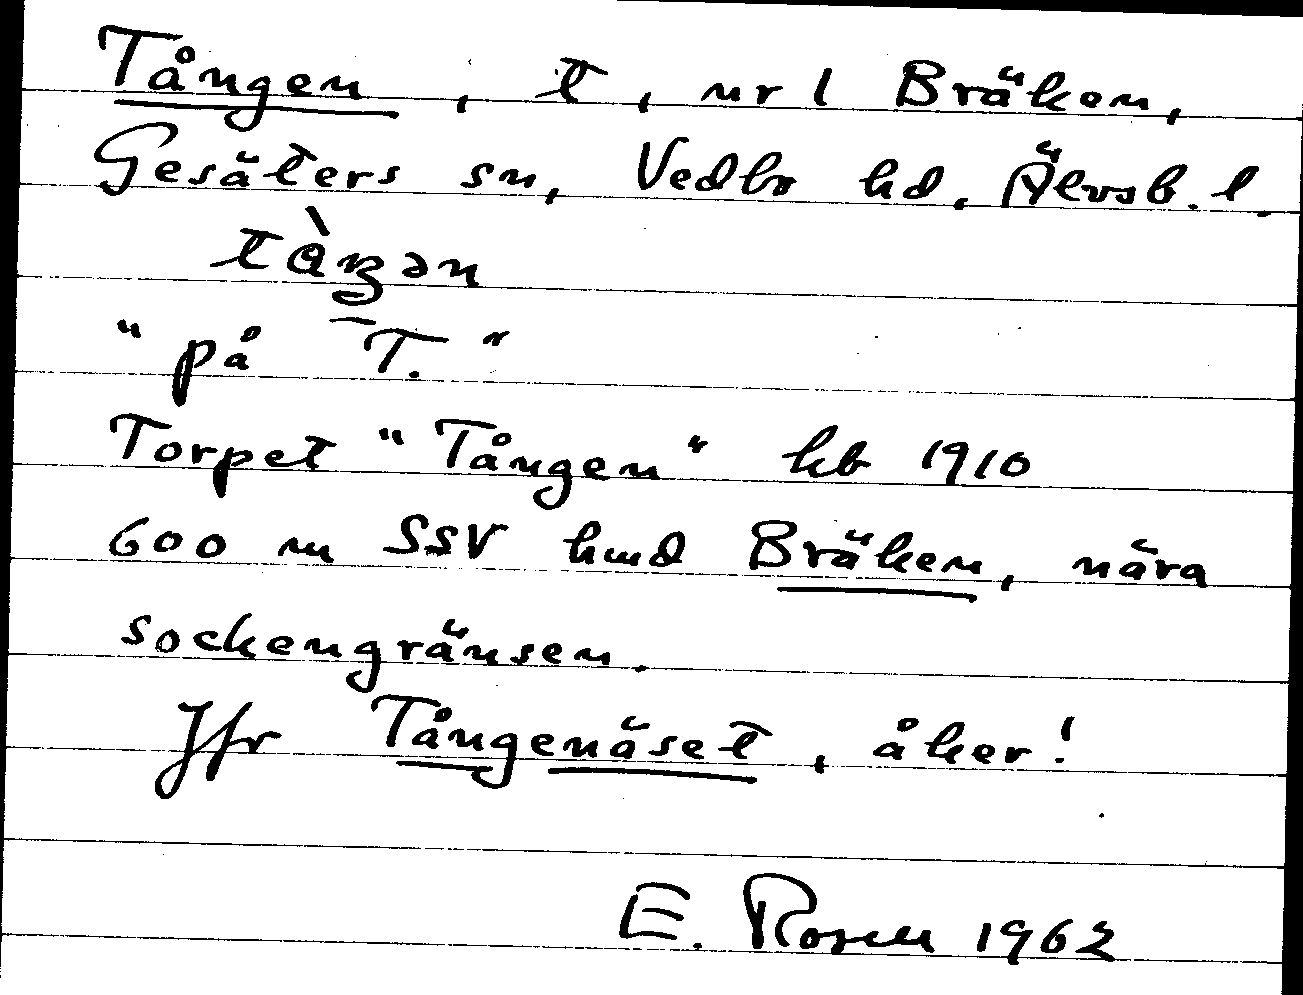 Tången, t, nr 1 Bräken,
Gesäters sn, Vedbo hd. Älvsb. l.
tàŋən
"på T."
Torpet "Tången" kb 1910
600 m SSV hmd Bräken, nära
sockengränsen.
Jfr Tångenäset, åker!
E. Rosell 1962